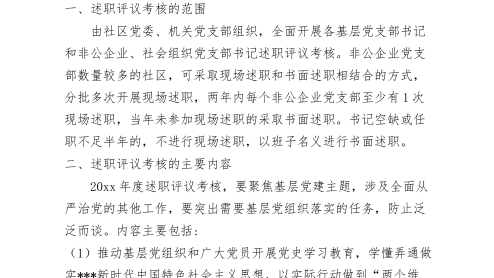 一、述职评议考核的范围
由社区党委、机关党支部组织，全面开展各基层党支部书记
和非公企业、社会组织党支部书记述职评议考核。非公企业党支
部数量较多的社区，可采取现场述职和书面述职相结合的方式，
分批多次开展现场述职，两年内每个非公企业党支部至少有1次
现场述职，当年未参加现场述职的采取书面述职。书记空缺或任
职不足半年的，不进行现场述职，以班子名义进行书面述职。
二、述职评议考核的主要内容
20xx年度述职评议考核，要聚焦基层党建主题，涉及全面从
严治党的其他工作，要突出需要基层党组织落实的任务，防止泛
泛而谈。内容主要包括：
（1）推动基层党组织和广大党员开展党史学习教育，学懂弄通做
实***新时代中国特色社会主义思想，以实际行动做到“两个维